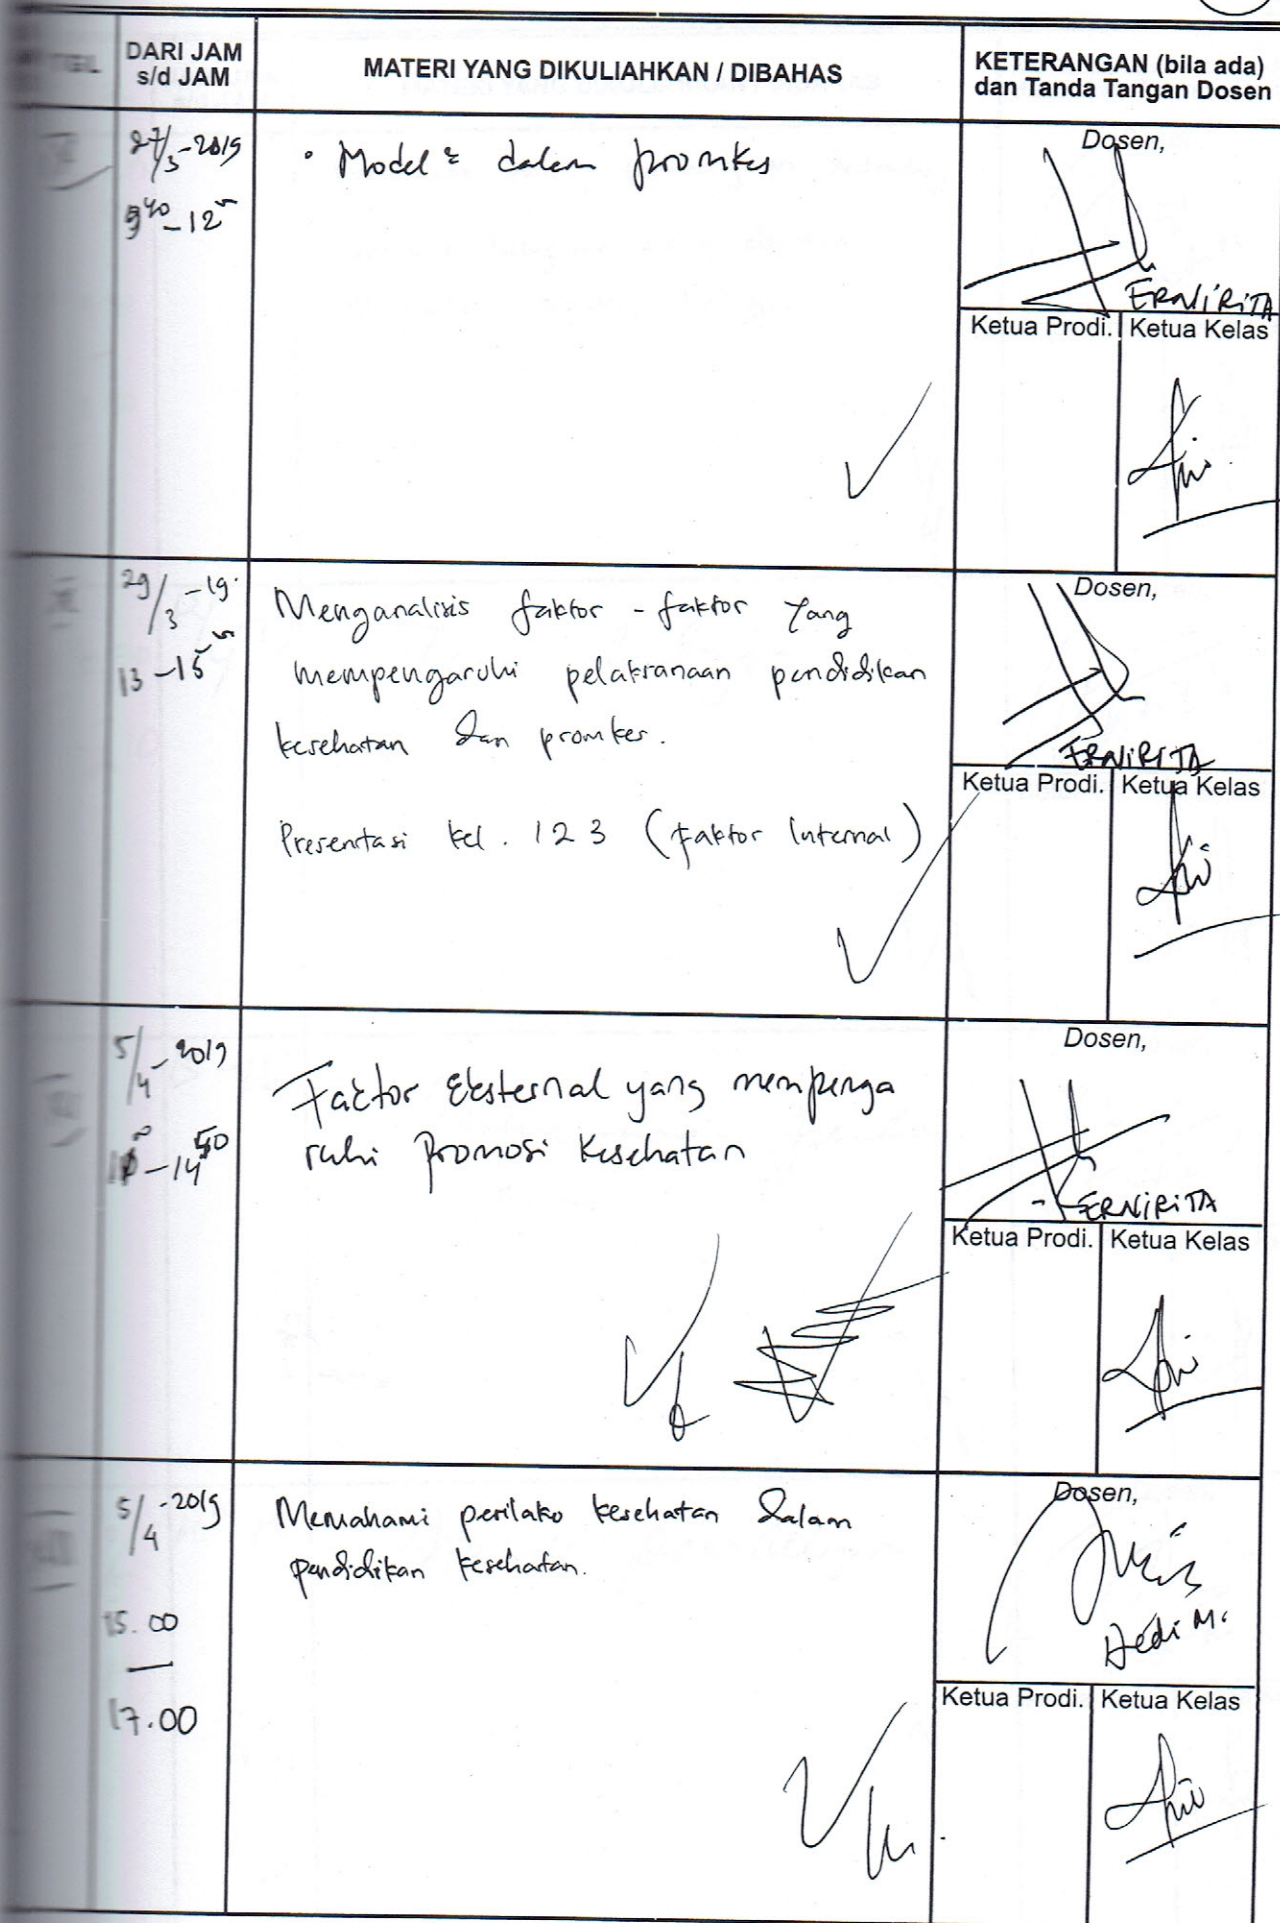 DARI JAM
s/d JAM
MATERI YANG DIKULIAHKAN / DIBAHAS
KETERANGAN (bila ada)
dan Tanda Tangan Dosen
27/3-2019
9⁴⁰-12
• Model² dalam promkes
Dosen,
ERNIRITA
Ketua Prodi.
Ketua Kelas
29/3-19.
13-15
Menganalisis faktor-faktor yang
mempengaruhi pelaksanaan pendidikan
kesehatan dan promkes.
Presentasi kel. 1 2 3 (faktor Internal)
Dosen,
ERNIRITA
Ketua Prodi.
Ketua Kelas
5/4-2019
-14⁵⁰
Faktor Eksternal yang mempenga
ruhi Promosi Kesehatan
Dosen,
ERNIRITA
Ketua Prodi.
Ketua Kelas
5/4-2019
15.00
—
17.00
Memahami perilaku kesehatan dalam
pendidikan kesehatan.
Dosen,
Dedi M.
Ketua Prodi.
Ketua Kelas